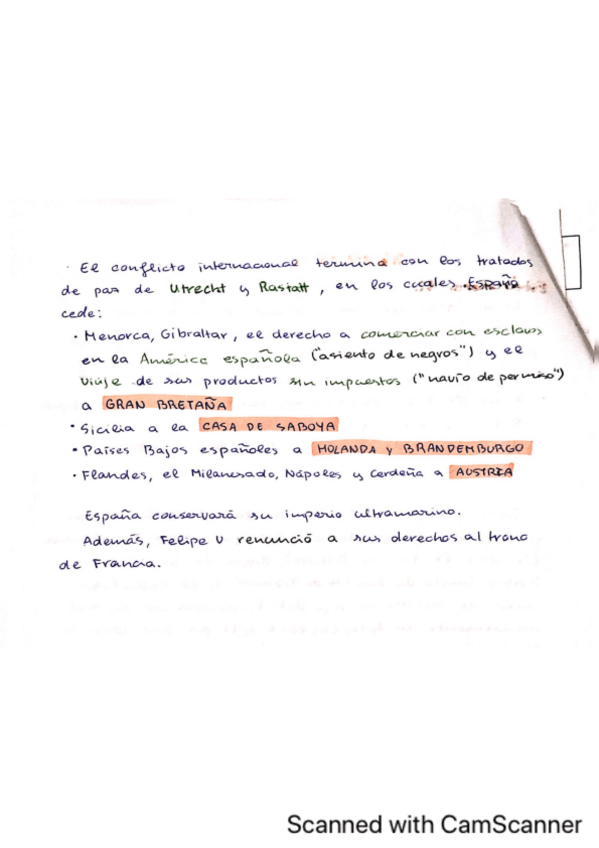 · El conflicto internacional termina con los tratados
de paz de Utrecht y Rastatt, en los cuales España
cede:
· Menorca, Gibraltar, el derecho a comerciar con esclavos
en la América española ("asiento de negros") y el
viaje de sus productos sin impuestos ("navío de permiso")
a GRAN BRETAÑA
· Sicilia a la CASA DE SABOYA
· Países Bajos españoles a HOLANDA y BRANDEMBURGO
· Flandes, el Milanesado, Nápoles y Cerdeña a AUSTRIA
España conservará su imperio ultramarino.
Además, Felipe V renunció a sus derechos al trono
de Francia.
Scanned with CamScanner